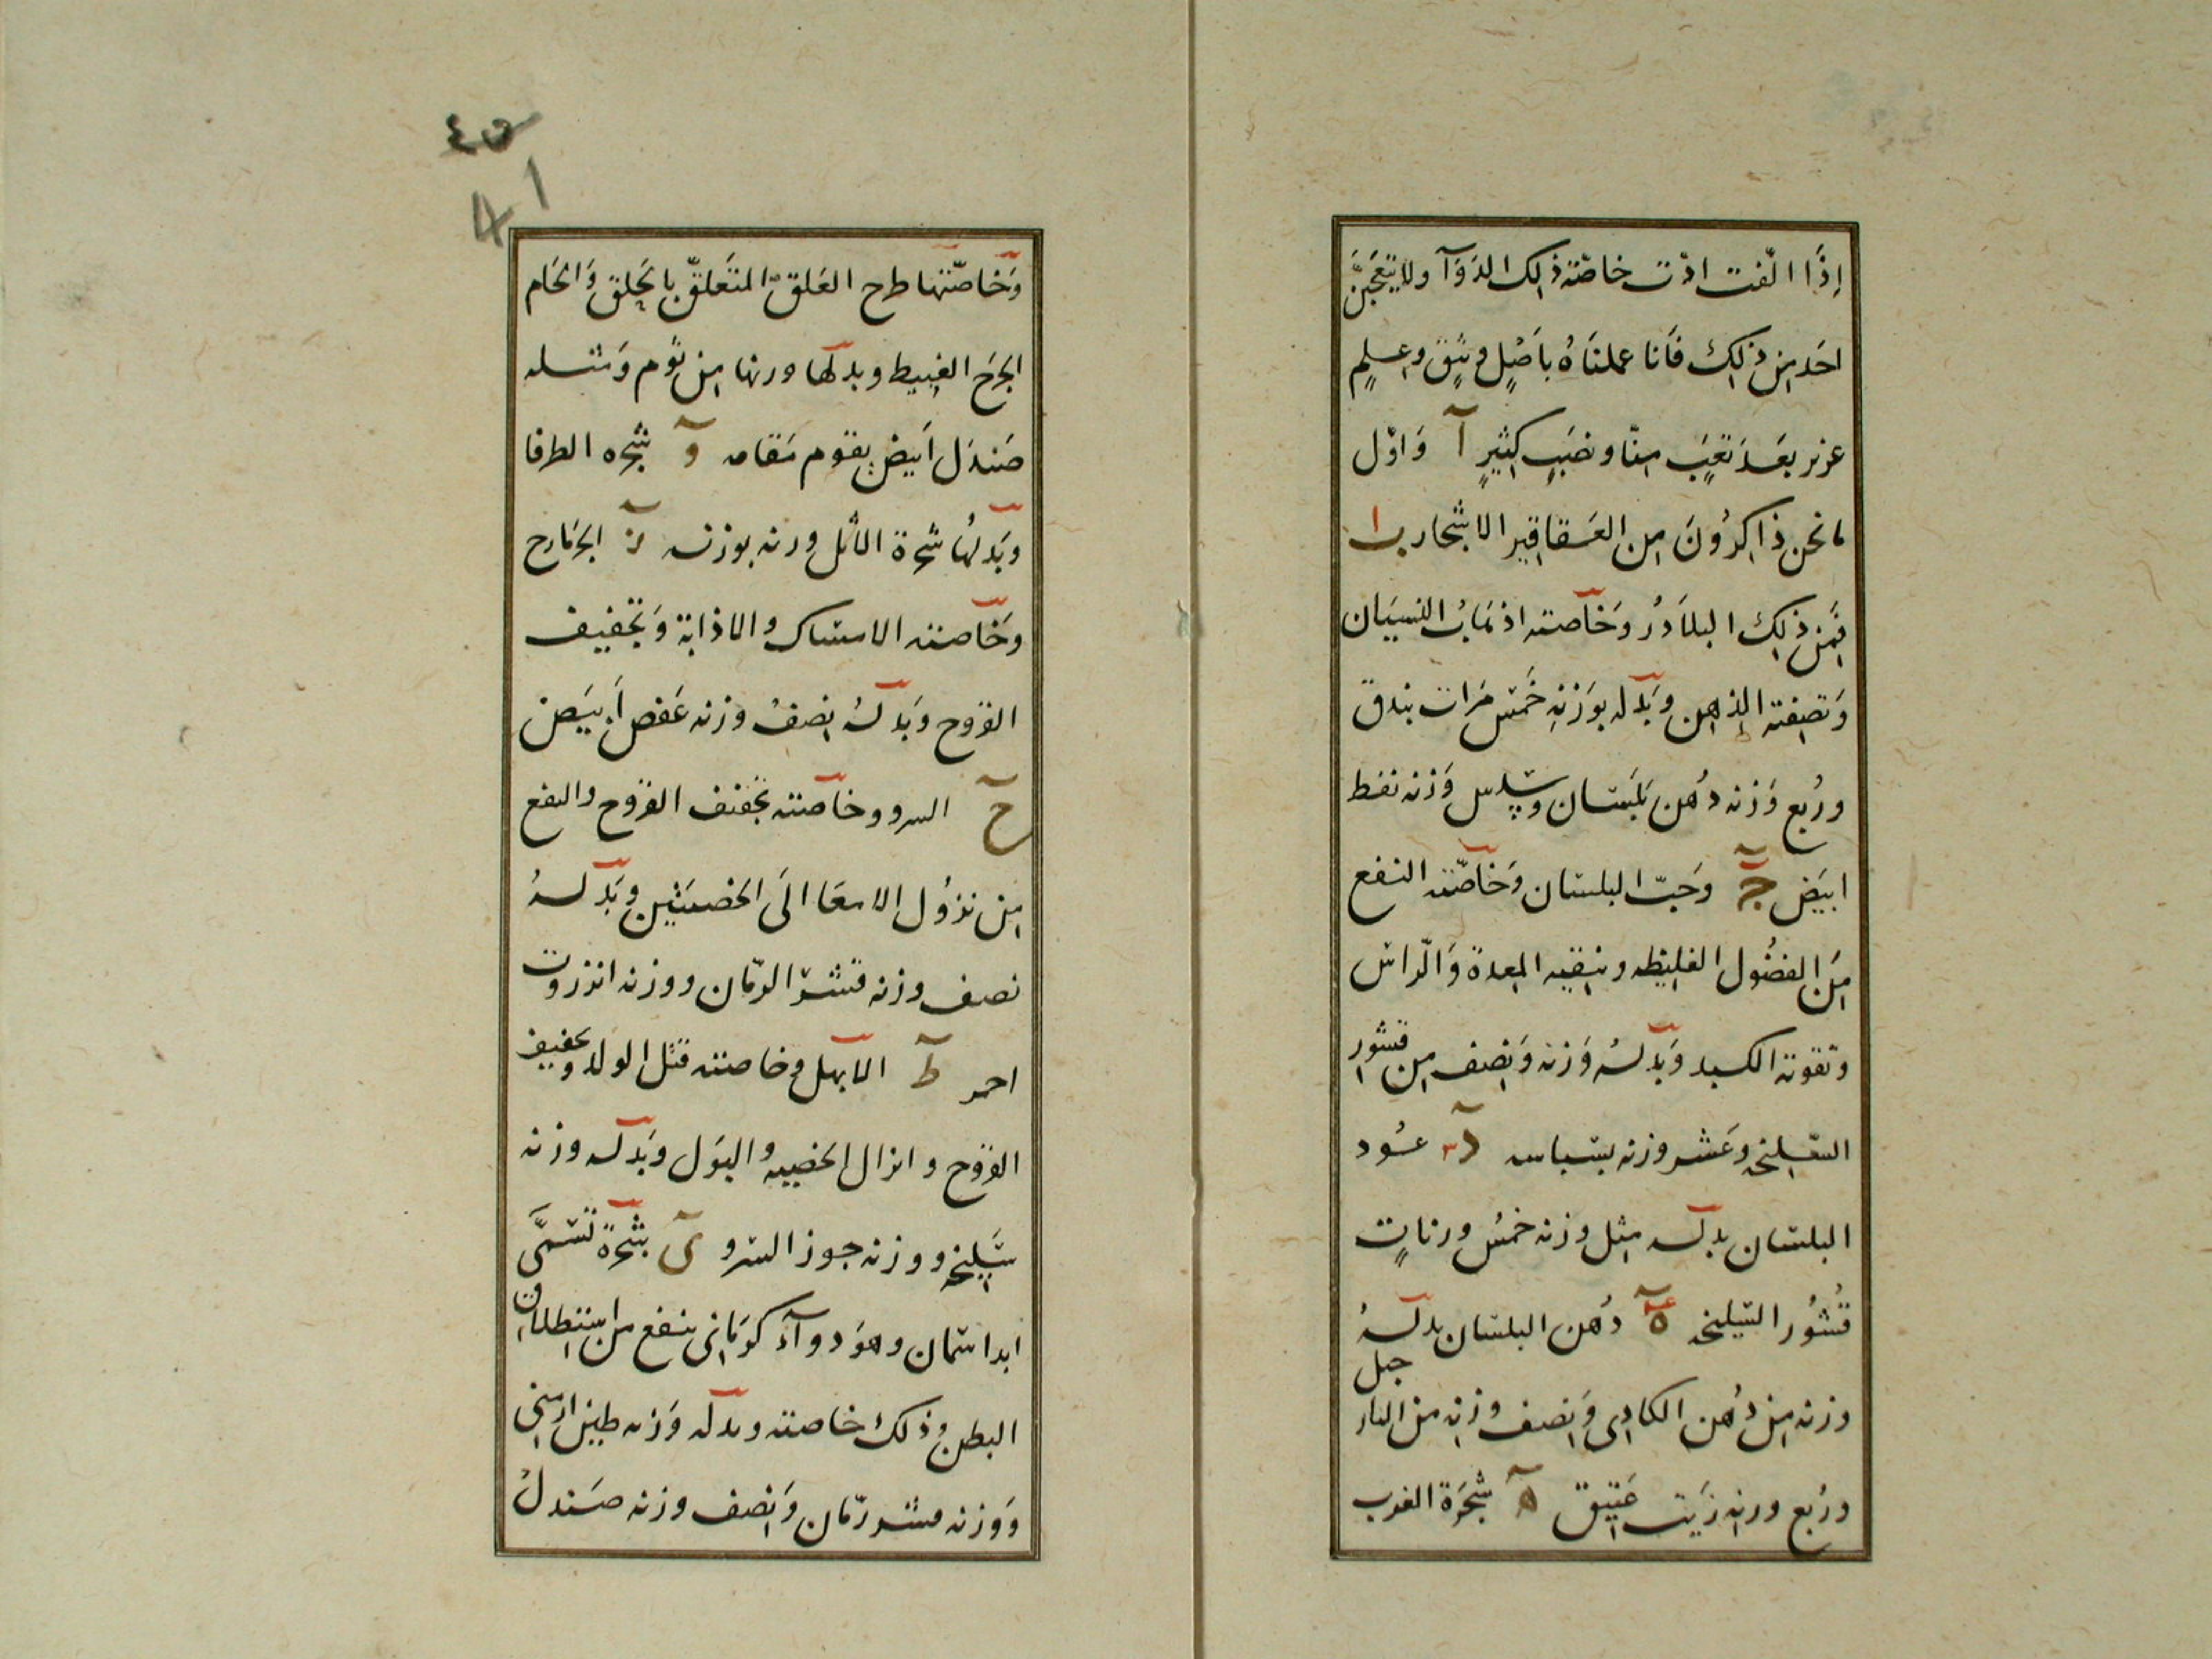 إذَا الّفت ادّت خاصّته ذلك الدوَآ ولا يتعجبنَّ
احَد مِن ذلِك فَانا عملنَاهُ بأصْلٍ وثيقٍ وعِلمٍ
عزيز بعَد تعَبٍ منّا ونصَبٍ كثيرٍ آ وَاوّل
ما نحن ذاكِرُونَ مِن العَقاقير الاشجار ب
فمِن ذلِك البلاَدُر وَخآصته اذهَابُ النسيَان
وَتصفيته الذِهن وبَدله بوَزنِه خَمْس مَرات بندق
ورُبع وَزنه دُهن بَلسَان وسُدس وَزنه نفط
ابيَض جَ وَحَبّ البلسان وَخاصّته النفع
مِنَ الفضُول الغليظه وينقيه المِعدة وَالرّاس
وتقوته الكبد وَبَدلهُ وَزنه وَنِصف مِن قشور
السّليخه وعَشر وزنه بسباسه د عُود
البلسَان بدله مِثل وزنه خَمسُ وزناتٍ
قُشُور السّليخه ه دُهن البلسَان بدلهُ
وزنه مِن دُهن الكاذِى وَنِصف وزنِه من النار
جبل
ورُبع وزنِه زَيت عَتيق ه شجَرَة الغرب
٤٥
41
وَخَاصّتها طرح العَلق المتَعلقّ بالحَلق وَالحَام
الجَرحَ الغبيط وبدلها وزنها مِن ثوم وَمثله
صَندَل اَبيض يقوم مَقامه وَ شجره الطرفا
وبَدلهُا شجرة الاثل وزنه بوزنه ز الجَزمَازح
وخَاصته الاستاك والاذابة وَتجفيف
القرُوح وَبَدلهُ نِصفُ وزنه عَفص اَبيَض
ح السرو وخاصته تجفف القروح والنفع
مِن نزوُل الامعَا الَى الخصيَتَين وبَدلهُ
نصف وزنه قشرَ الرّمان ووزنه انزروت
احمر ط الابهل وخاصته قتل الولد وتجفيف
القرُوح وانزال الحَيضه والبَول وبَدله وزنه
سَليخه ووزنه جوز السَرو ى شجَرَة تسَمَّى
ابداسمَان وهوَ دوآء كومَانِى ينفع مِن اِستطلاق
البطن وذلِك خاصته وبدله وَزنه طين ارمنِى
وَوزنه قشر رّمان وَنِصف وزنه صَندل